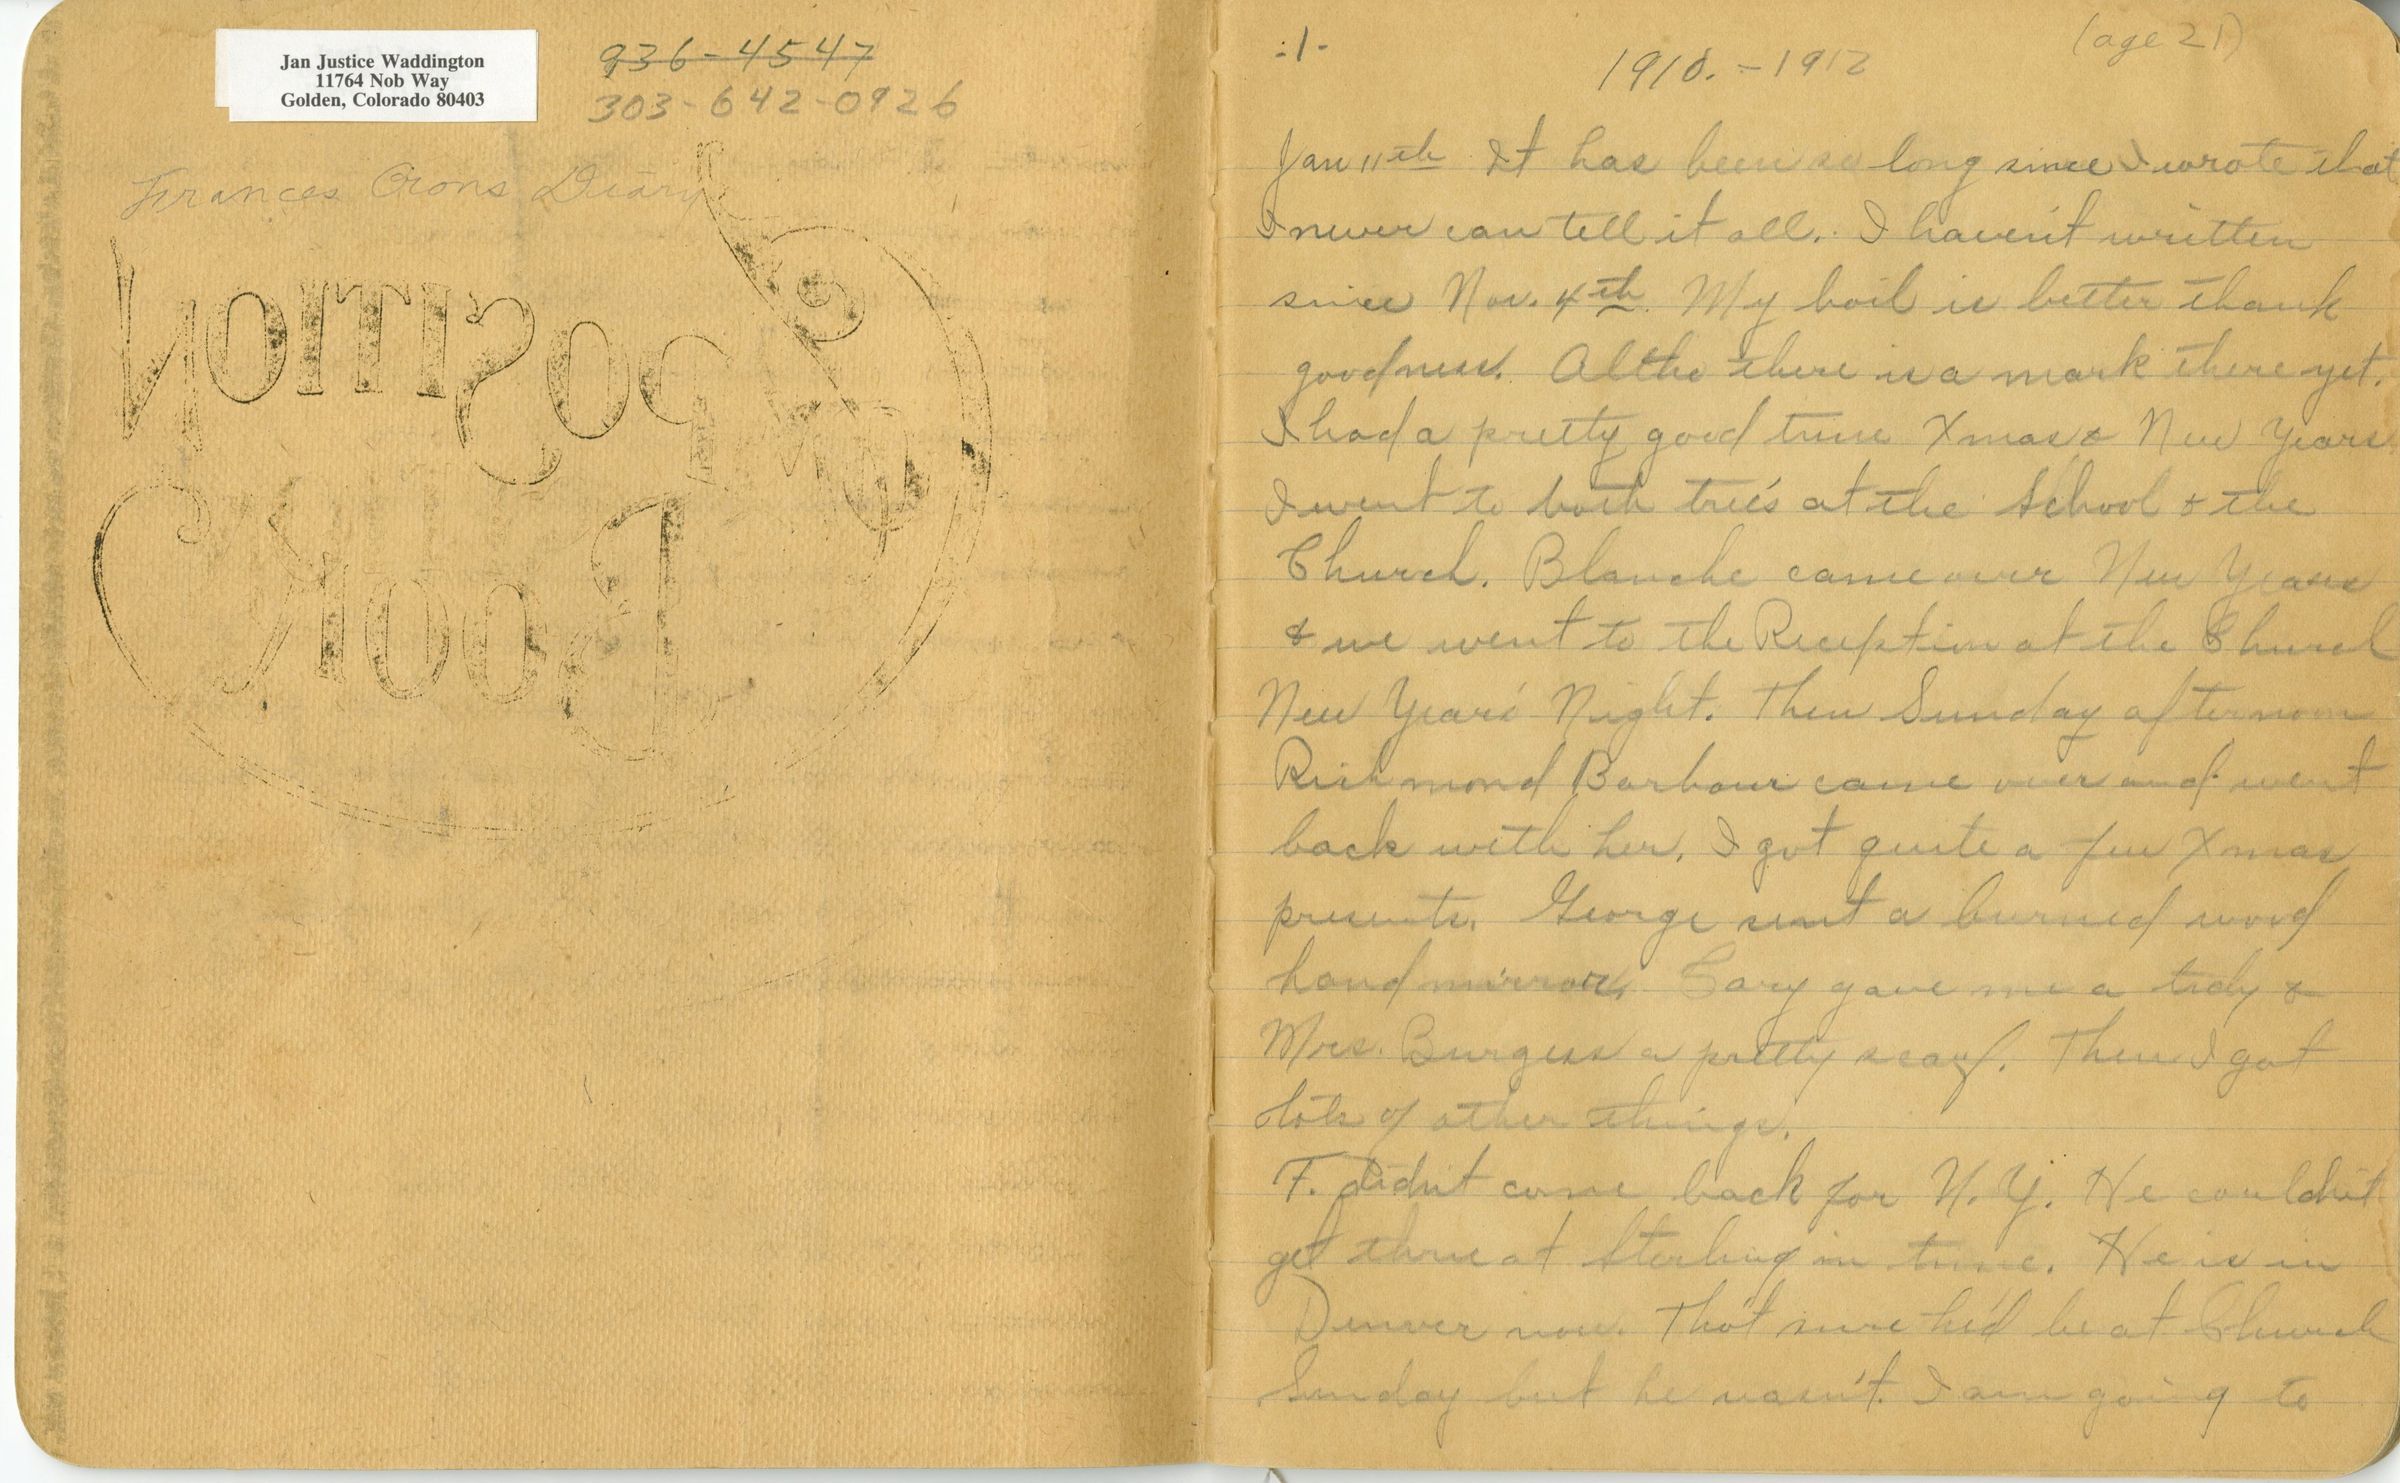 Jan Justice Waddington
11764 Nob Way
Golden, Colorado 80403
936-4547
303-642-0926
Frances Crons Diary
COMPOSITION
BOOK
-1-
(age 21)
1910. - 1912
Jan 11th It has been so long since I wrote that
I never can tell it all. I haven't written
since Nov. 4th. My boil is better thank
goodness. Altho there is a mark there yet.
I had a pretty good time Xmas & New Years
I went to both tree's at the School & the
Church. Blanche came over New Years
& we went to the Reception at the Church
New Year's Night. Then Sunday afternoon
Richmond Barbour came over and went
back with her. I got quite a few Xmas
presents. George sent a burned wood
hand mirror. Cary gave me a tidy &
Mrs. Burgess a pretty scarf. Then I got
lots of other things.
F. didn't come back for N.Y. He couldn't
get thru at Sterling in time. He is in
Denver now. Tho't sure he'd be at Church
Sunday but he wasn't. I am going to